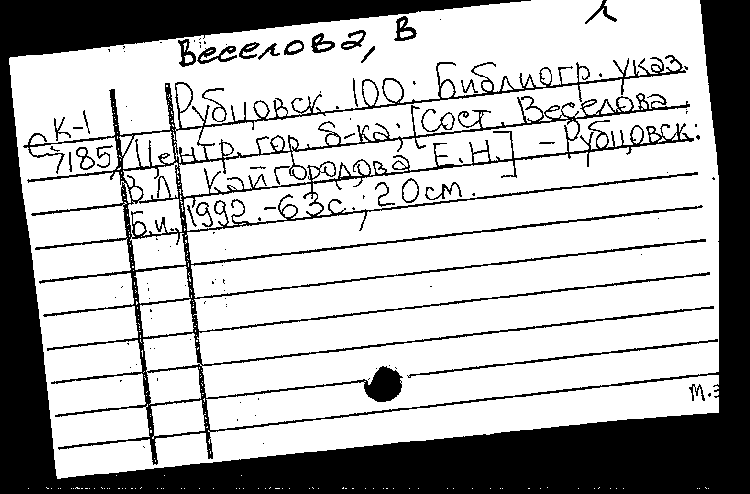 Веселова, В
Рубцовск. 100: Библиогр. указ.
К-1
С 7185 / Центр. гор. б-ка; [Сост. Веселова
В.Л., Кайгородова Е.Н.] - Рубцовск:
Б.и., 1992.-63с.; 20см.
т.з